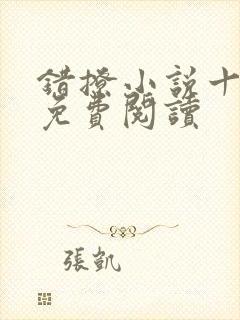 錯撩小説十
免費閱讀
張凱